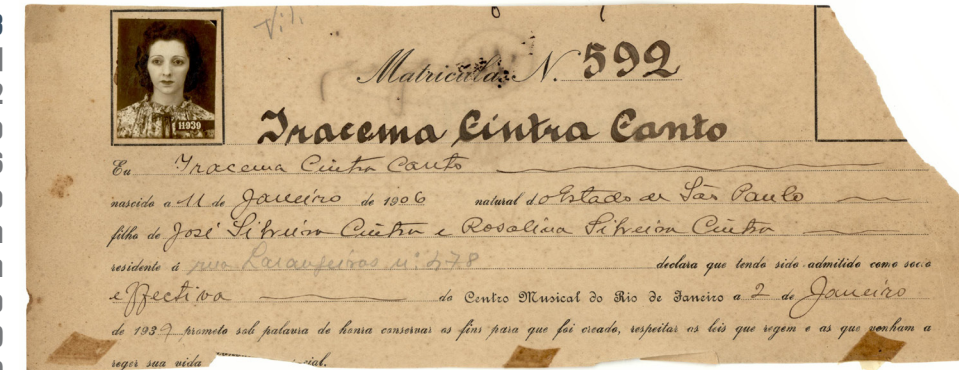 11939
Matricula N. 592
Iracema Cintra Canto
Eu Iracema Cintra Canto
nascido a 11 de Janeiro de 1906 natural do Estado de São Paulo
filho de José Silveira Cintra e Rosalina Silveira Cintra
residente á rua Laranjeiras nº 478 declara que tendo sido admitido como socio
effectiva do Centro Musical do Rio de Janeiro a 2 de Janeiro
de 1937 prometo sob palavra de honra conservar os fins para que foi creado, respeitar as leis que regem e as que venham a
reger sua vida social.